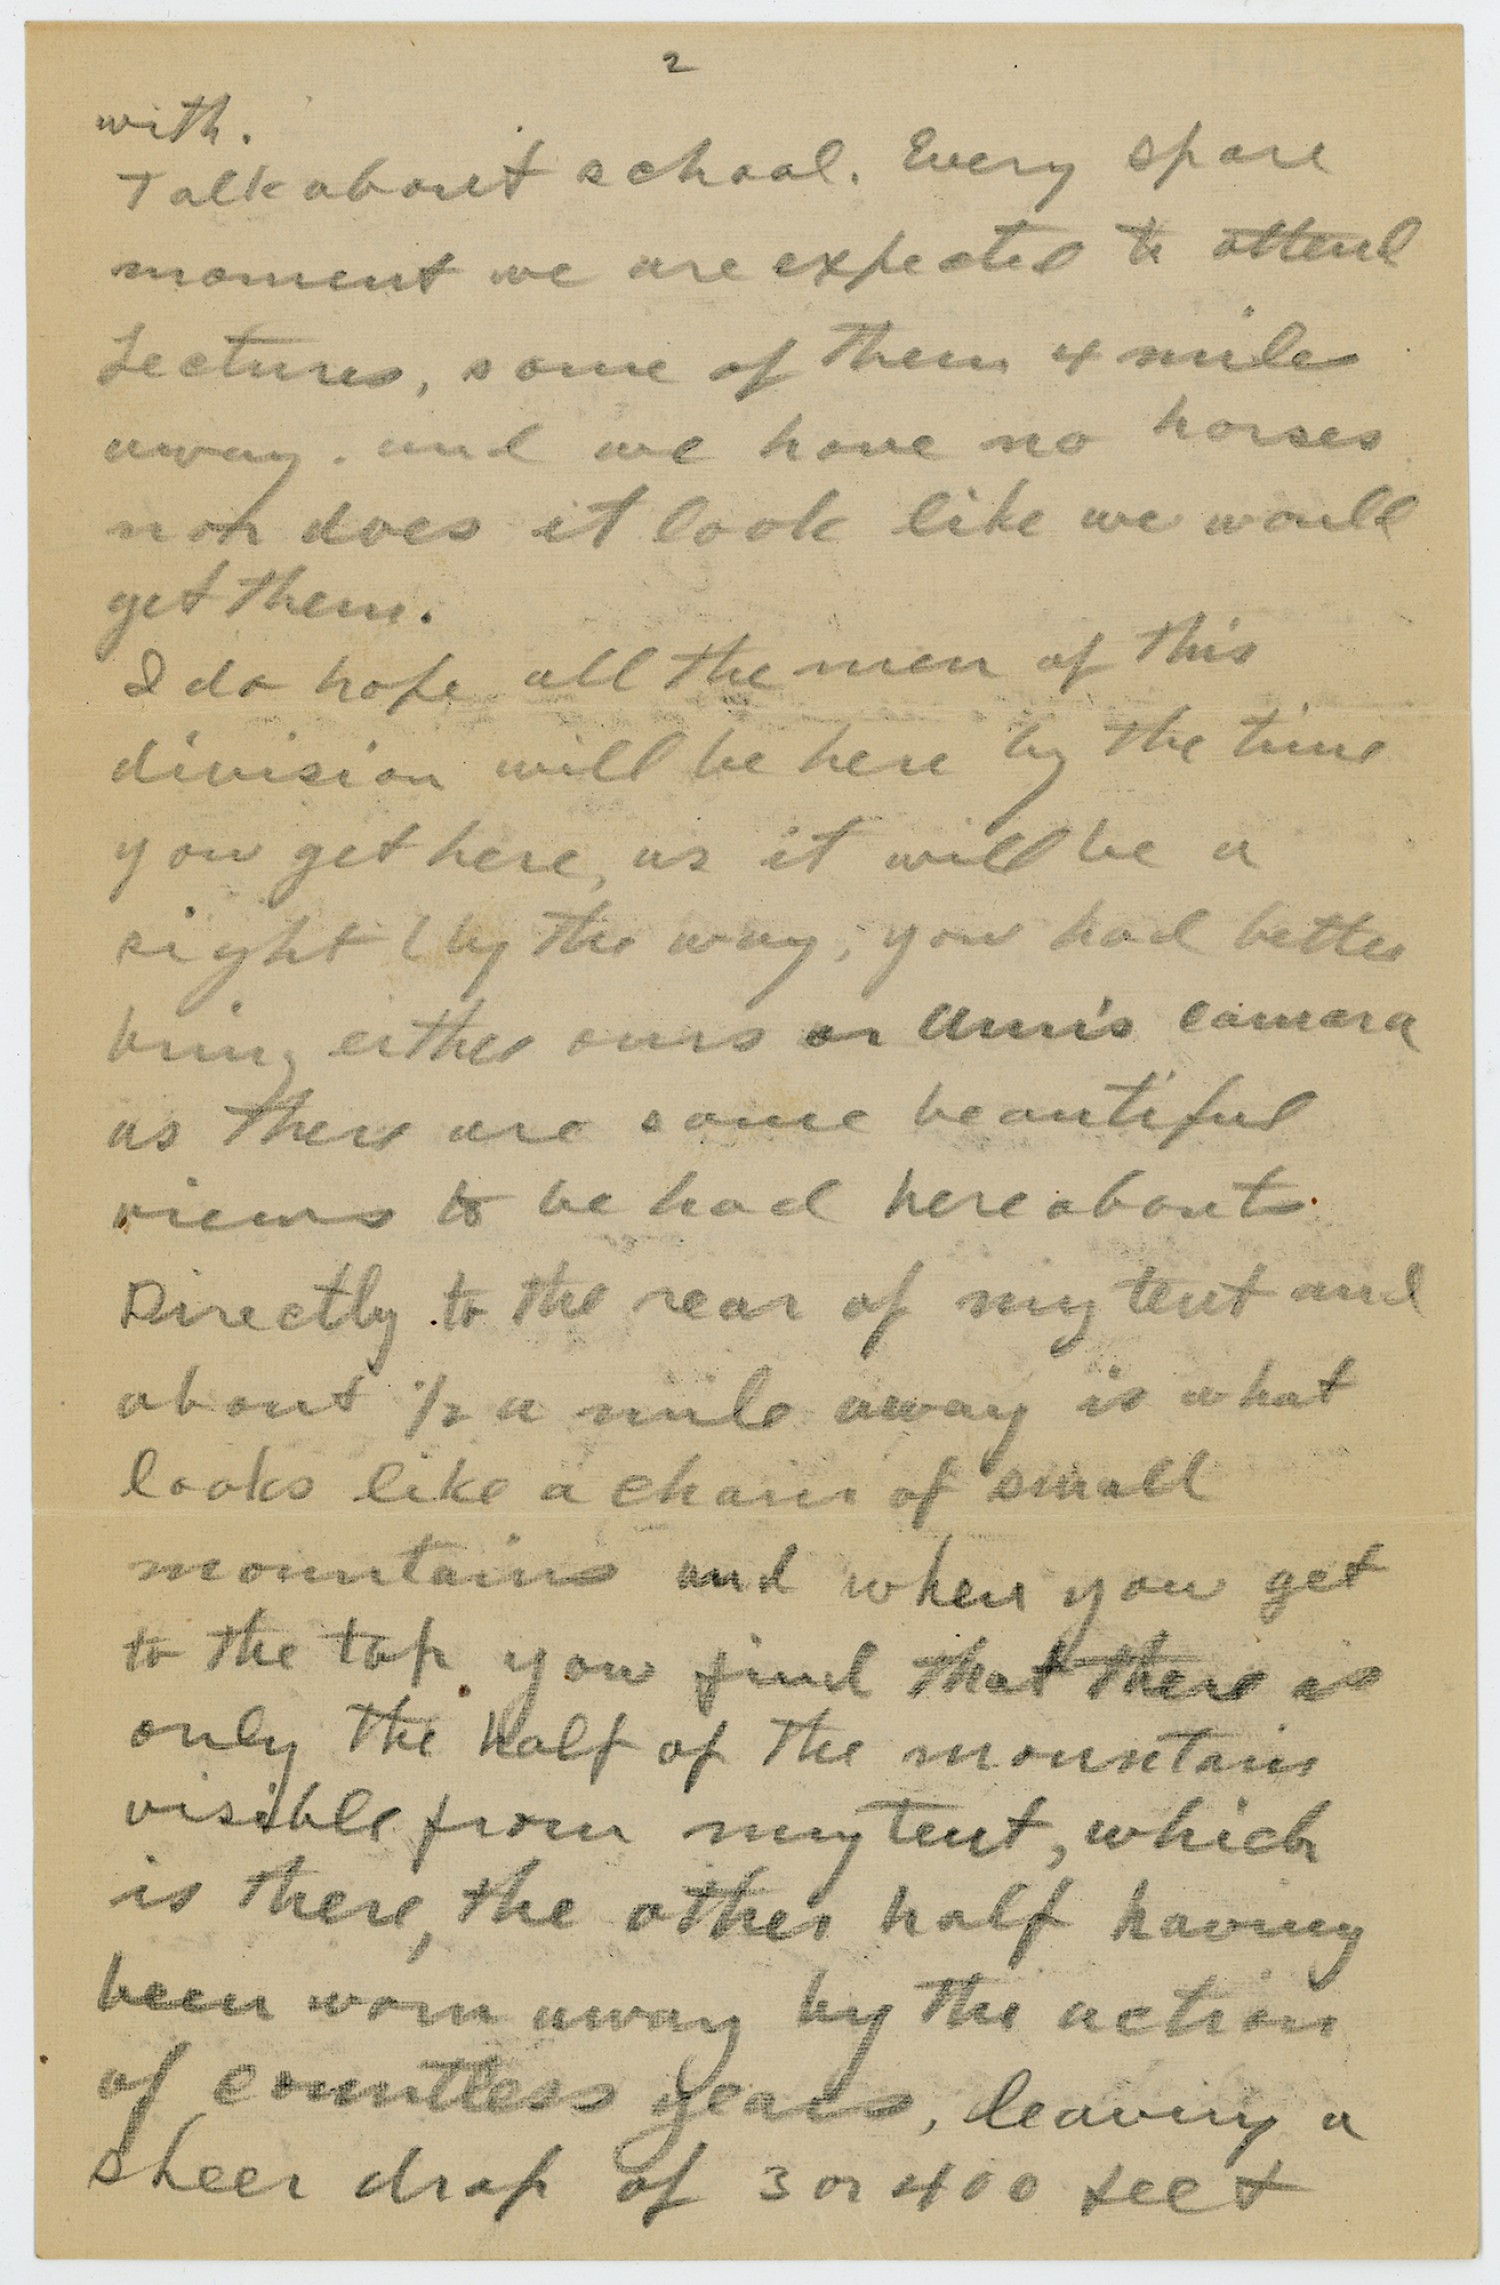 2
with.
Talk about school. Every spare
moment we are expected to attend
Lectures, some of them 4 miles
away. and we have no horses
nor does it look like we would
get them.
I do hope all the men of this
division will be here by the time
you get here, as it will be a
sight (by the way, you had better
bring either ours or Ann's camera
as there are some beautiful
views to be had hereabouts.
Directly to the rear of my tent and
about 1/2 a mile away is what
looks like a chain of small
mountains and when you get
to the top you find that there is
only the half of the mountain
visible from my tent, which
is there, the other half having
been worn away by the action
of countless years, leaving a
sheer drop of 3 or 400 feet